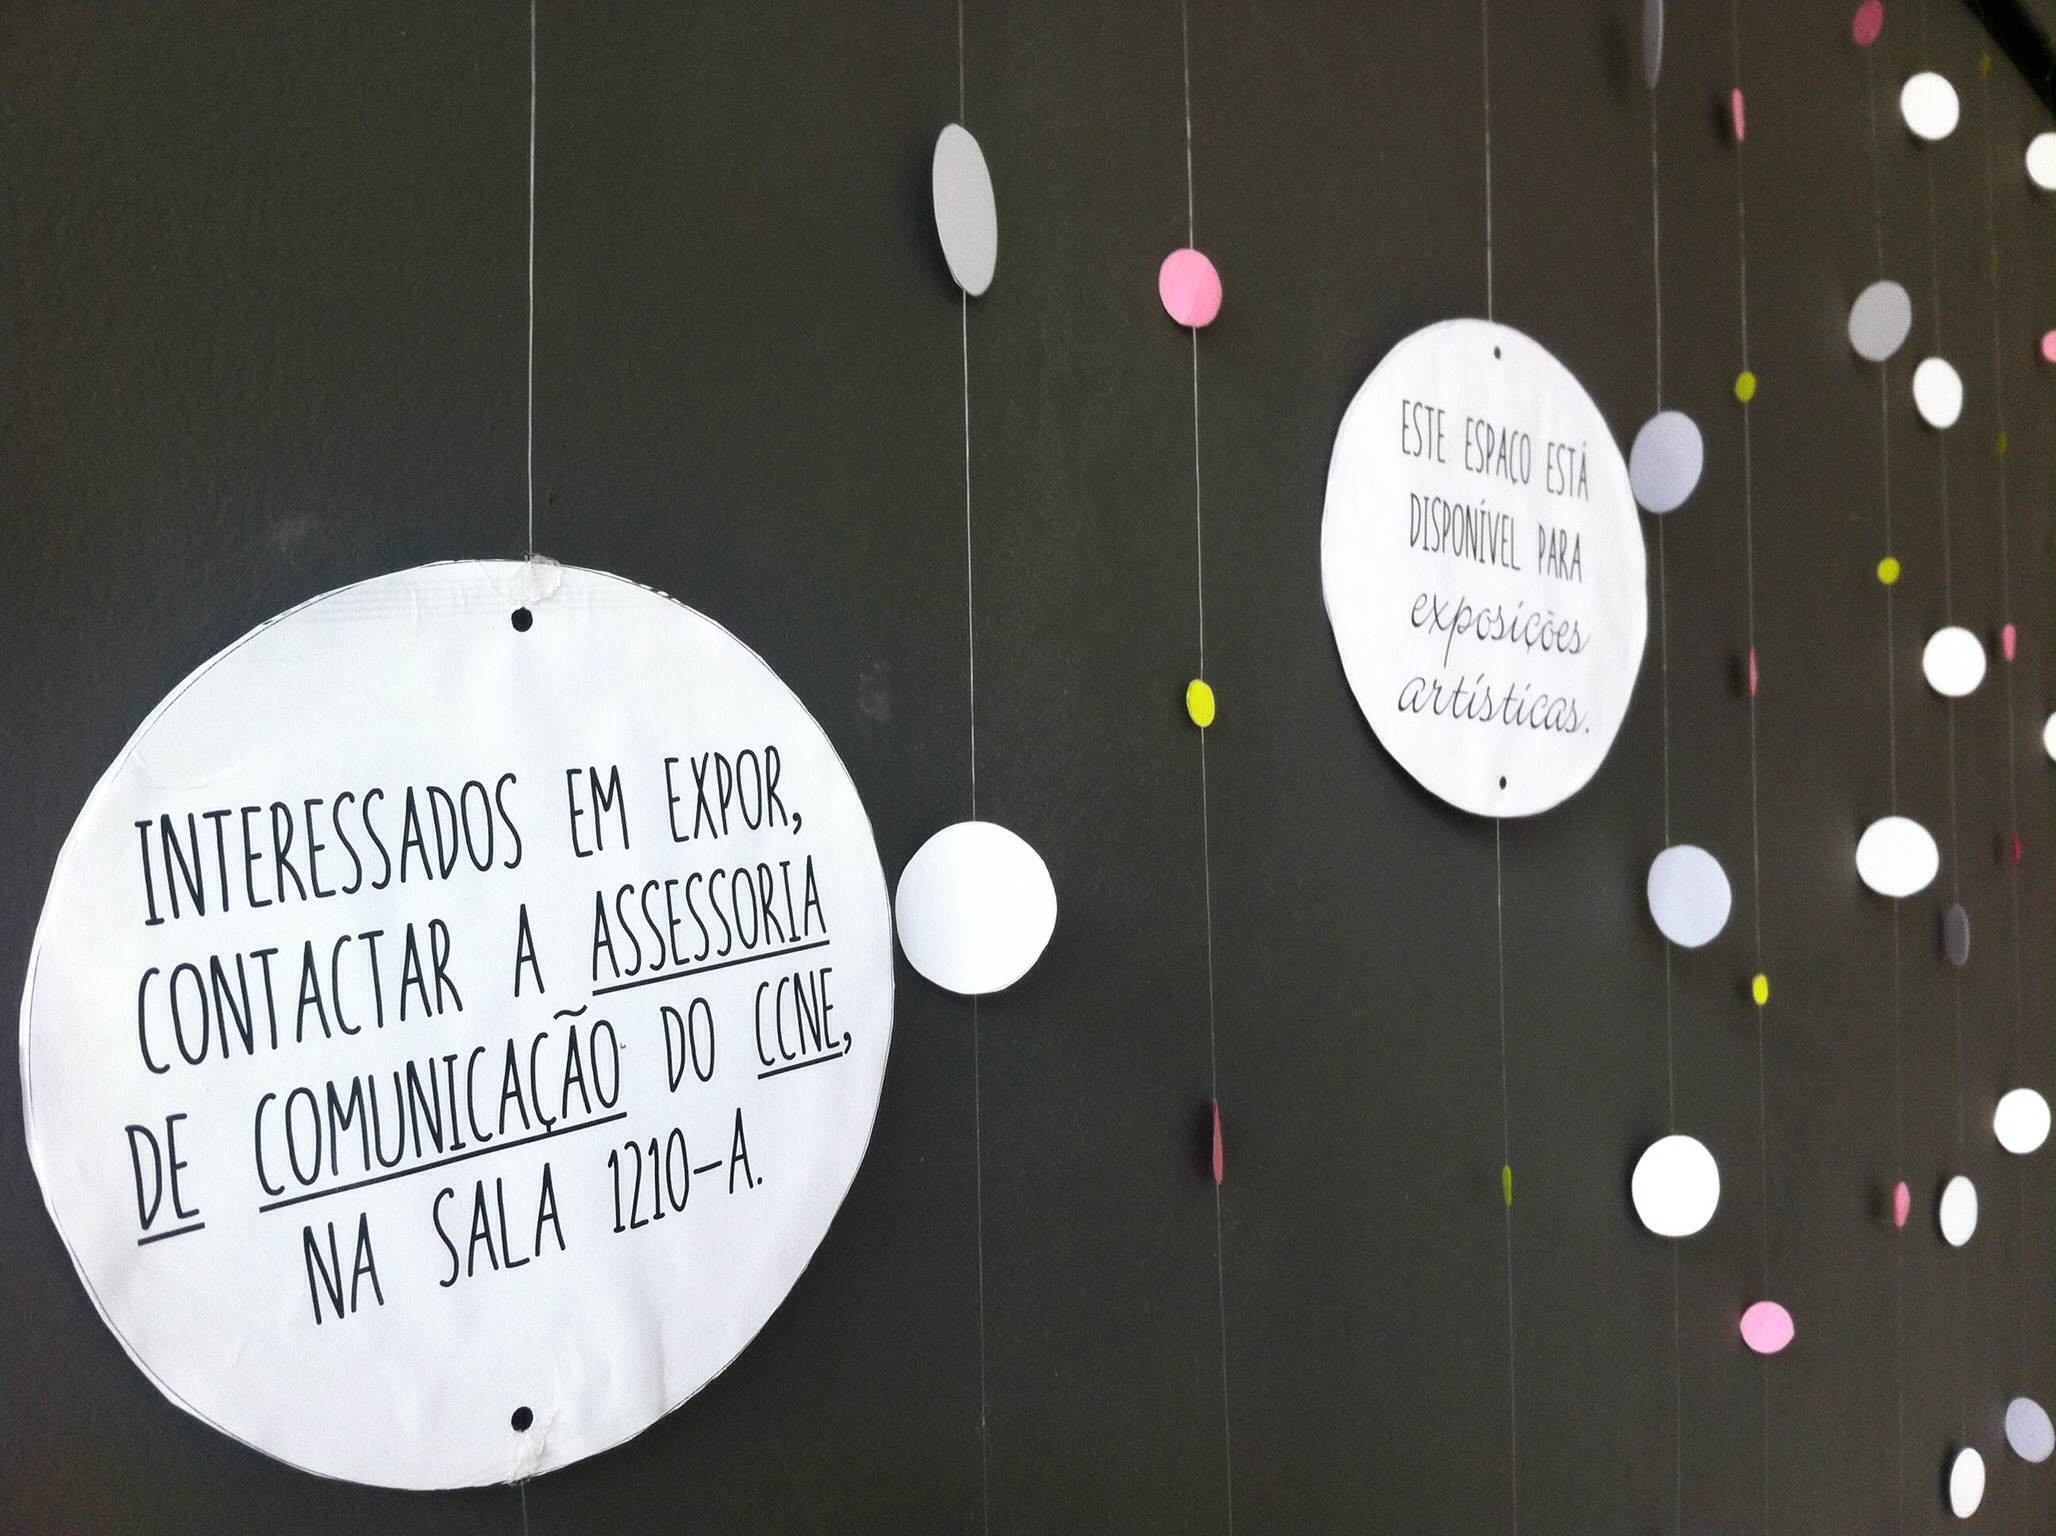 INTERESSADOS EM EXPOR,
CONTACTAR A ASSESSORIA
DE COMUNICAÇÃO DO CCNE,
NA SALA 1210-A.
ESTE ESPAÇO ESTÁ
DISPONÍVEL PARA
exposições
artísticas.